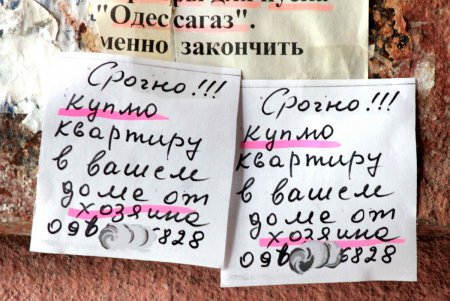 "Одессагаз".
менно закончить
Срочно!!!
купмо
квартиру
в вашем
доме от
хозяина
09 5828
Срочно!!!
купмо
квартиру
в вашем
доме от
хозяина
09 5828